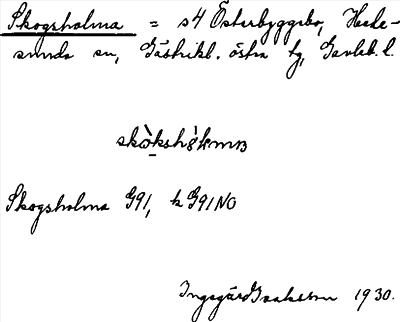 Skogsholma = s4 Österbyggebo, Hede-
sunda sn, Gästrikl. östra tg, Gävleb. l.
Skogsholma G91, k G91NO
Ingegärd Isaksson 1930.